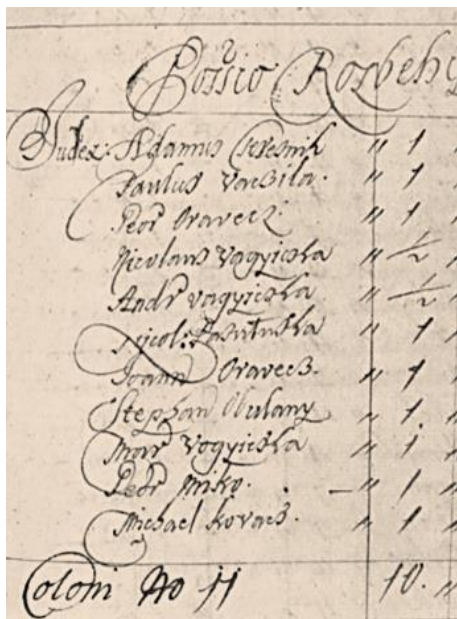 Possio Rosbehy
Judex: Adamus Cseresnik " 1 "
Paulus Vaszila. " 1 "
Petr Oravecz. " 1 "
Nicolaus Vagyiczka " 1/2 "
Andr Vagyiczka " 1/2 "
" 1 "
Joann Oravecz. " 1 "
Stephan Obulany " 1 "
Mat Vogyiczka " 1 "
Petr Miko. " 1 "
Michael Kovacs. " 1 "
Coloni No 11 10. "